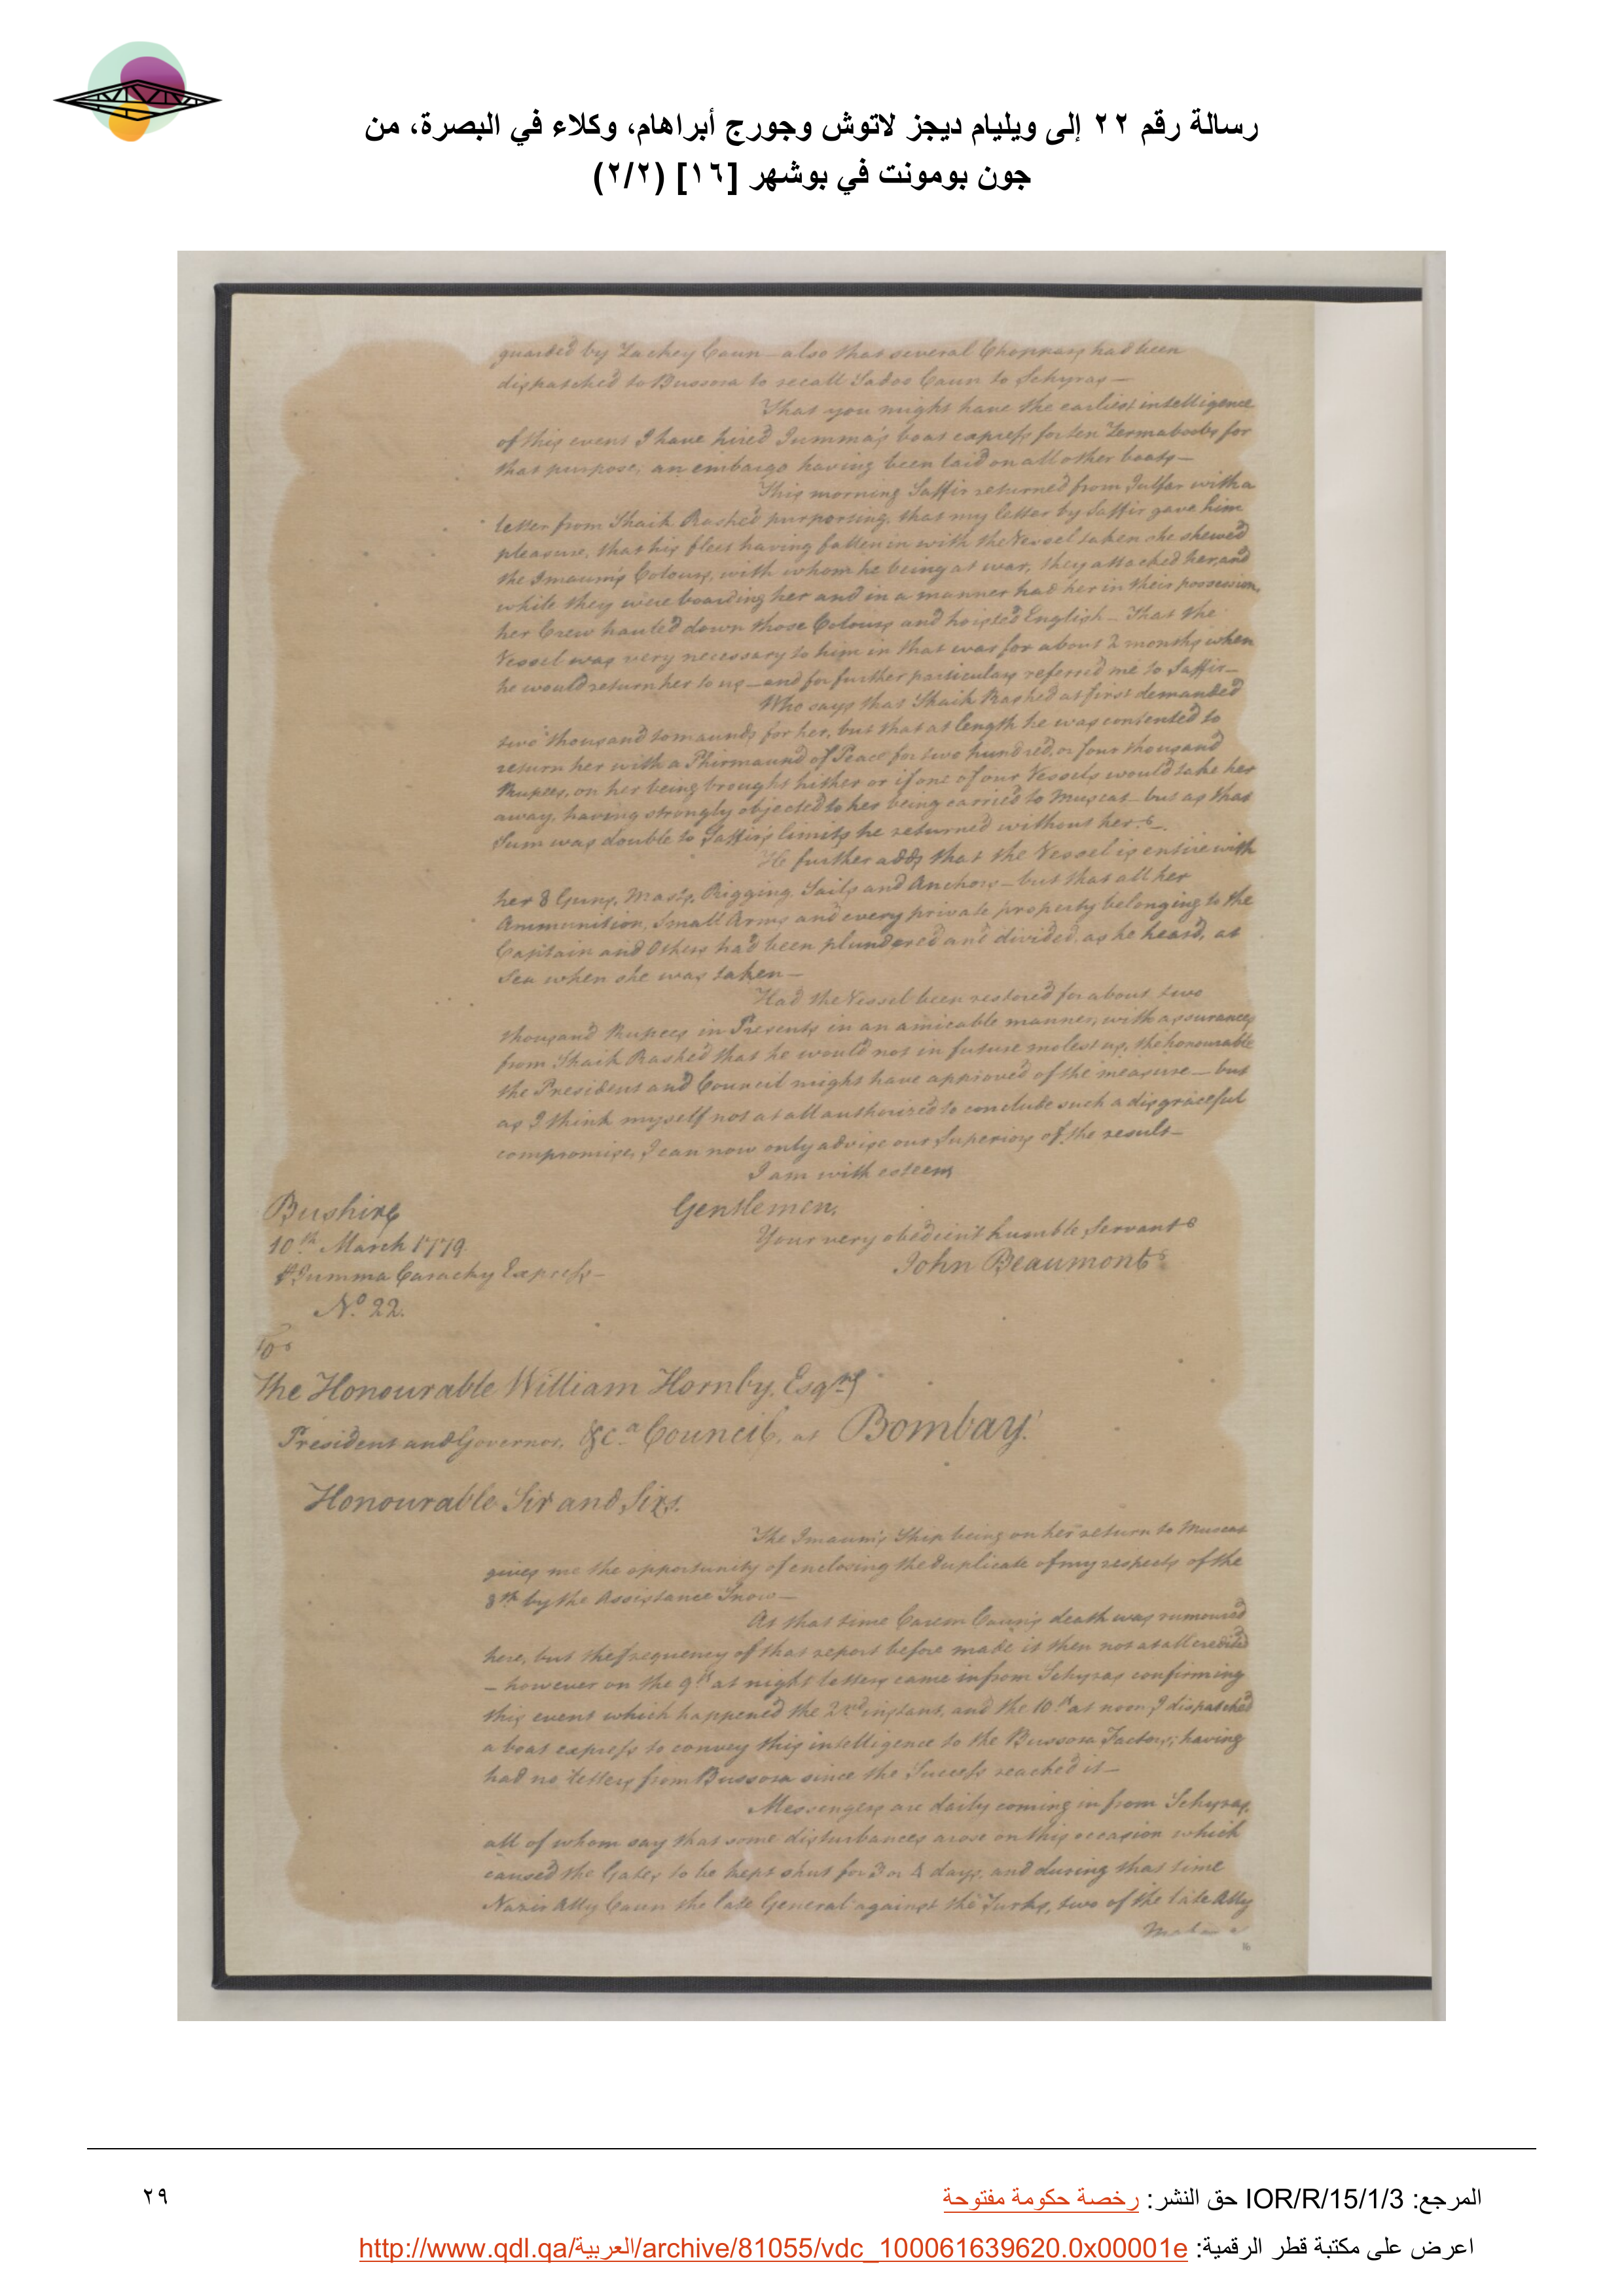 رسالة رقم ٢٢ إلى ويليام ديجز لاتوش وجورج أبراهام، وكلاء في البصرة، من
جون بومونت في بوشهر [١٦] (٢/٢)
guarded by Zackey Caun – also that several Choppars had been
dispatched to Bussora to recall Sadoo Caun to Schyras –
That you might have the earliest intelligence
of this event I have hired Jumma's boat express for ten Zermaboobs for
that purpose; an embargo having been laid on all other boats –
This morning Saffir returned from Julfar with a
letter from Shaik Rashed purporting, that my letter by Saffir gave him
pleasure, that his fleet having fallen in with the Vessel taken she shewed
the Imaum's Colours, with whom he being at war, they attacked her, and
while they were boarding her and in a manner had her in their possession,
her Crew hauled down those Colours and hoisted English – That the
Vessel was very necessary to him in that war for about 2 months when
he would return her to us – and for further particulars referred me to Saffir –
Who says that Shaik Rashed at first demanded
two thousand tomaunds for her, but that at length he was contented to
return her with a Phirmaund of Peace for two hundred, or four thousand
Rupees, on her being brought hither or if one of our Vessels would take her
away, having strongly objected to her being carried to Muscat – but as that
Sum was double to Saffir's limits he returned without her. –
He further adds that the Vessel is entire with
her 8 Guns, Masts, Rigging, Sails and Anchors – but that all her
Ammunition, Small Arms and every private property belonging to the
Captain and Others had been plundered and divided, as he heard, at
Sea when she was taken –
Had the Vessel been restored for about two
thousand Rupees in Presents in an amicable manner, with assurances
from Shaik Rashed that he would not in future molest us, the honourable
the President and Council might have approved of the measure – but
as I think myself not at all authorized to conclude such a disgraceful
compromise, I can now only advise our Superiors of the result –
I am with esteem
Gentlemen,
Your very obedient humble Servant
John Beaumont
Bushire
10th March 1779
Jumma Carachy Express –
No. 22.
To
The Honourable William Hornby, Esqre
President and Governor, &ca Council, at Bombay.
Honourable Sir and Sirs.
The Imaum's Ship being on her return to Muscat
gives me the opportunity of enclosing the duplicate of my respects of the
8th by the Assistance Snow –
At that time Carem Caun's death was rumoured
here, but the frequency of that report before made it then not at all credited
– however on the 9th at night letters came in from Schyras confirming
this event which happened the 2nd instant, and the 10th at noon I dispatched
a boat express to convey this intelligence to the Bussora Factory; having
had no letters from Bussora since the Success reached it –
Messengers are daily coming in from Schyras,
all of whom say that some disturbances arose on this occasion which
caused the Gates to be kept shut for 3 or 4 days, and during that time
Nazir Ally Caun the late General against the Turks, two of the late Ally
المرجع: IOR/R/15/1/3 حق النشر: رخصة حكومة مفتوحة
٢٩
اعرض على مكتبة قطر الرقمية: http://www.qdl.qa/العربية/archive/81055/vdc_100061639620.0x00001e